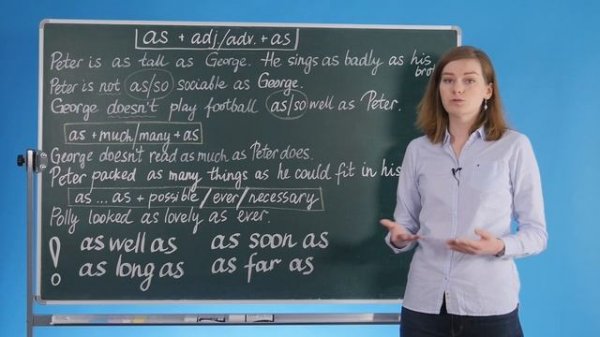 as + adj/adv. + as
Peter is as tall as George. He sings as badly as his
bro
Peter is not as/so sociable as George.
George doesn't play football as/so well as Peter.
as + much/many + as
George doesn't read as much as Peter does.
Peter packed as many things as he could fit in his
as ... as + possible/ever/necessary
Polly looked as lovely as ever.
! as well as as soon as
as long as as far as